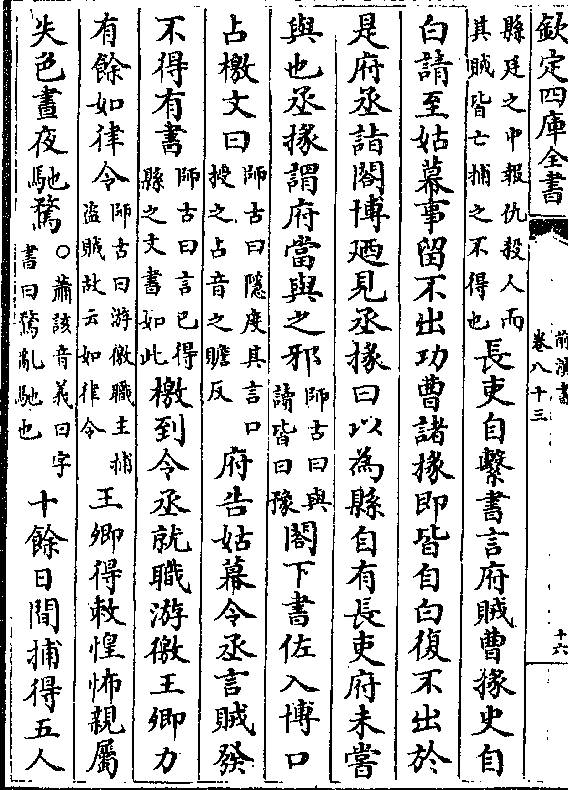 欽定四庫全書
前漢書
卷八十三
十六
縣廷之中報仇殺人而
其賊皆亡捕之不得也
長吏自繫書言府賊曹掾史自
白請至姑幕事留不出功曹諸掾即皆自白復不出於
是府丞詣閤博廼見丞掾曰以為縣自有長吏府未嘗
與也丞掾謂府當與之邪
師古曰與
讀皆曰豫
閤下書佐入博口
占檄文曰
師古曰隱度其言口
授之占音之贍反
府告姑幕令丞言賊發
不得有書
師古曰言已得
縣之文書如此
檄到令丞就職游徼王卿力
有餘如律令
師古曰游徼職主捕
盜賊故云如律令
王卿得敕惶怖親屬
失色晝夜馳騖
○蕭該音義曰字
書曰騖亂馳也
十餘日間捕得五人